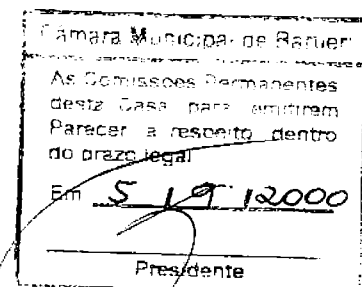 Câmara Municipal de Barueri
As Comissões Permanentes
desta Casa para emitirem
Parecer a respeito dentro
do prazo legal
Em 5 / 9 / 2000
Presidente